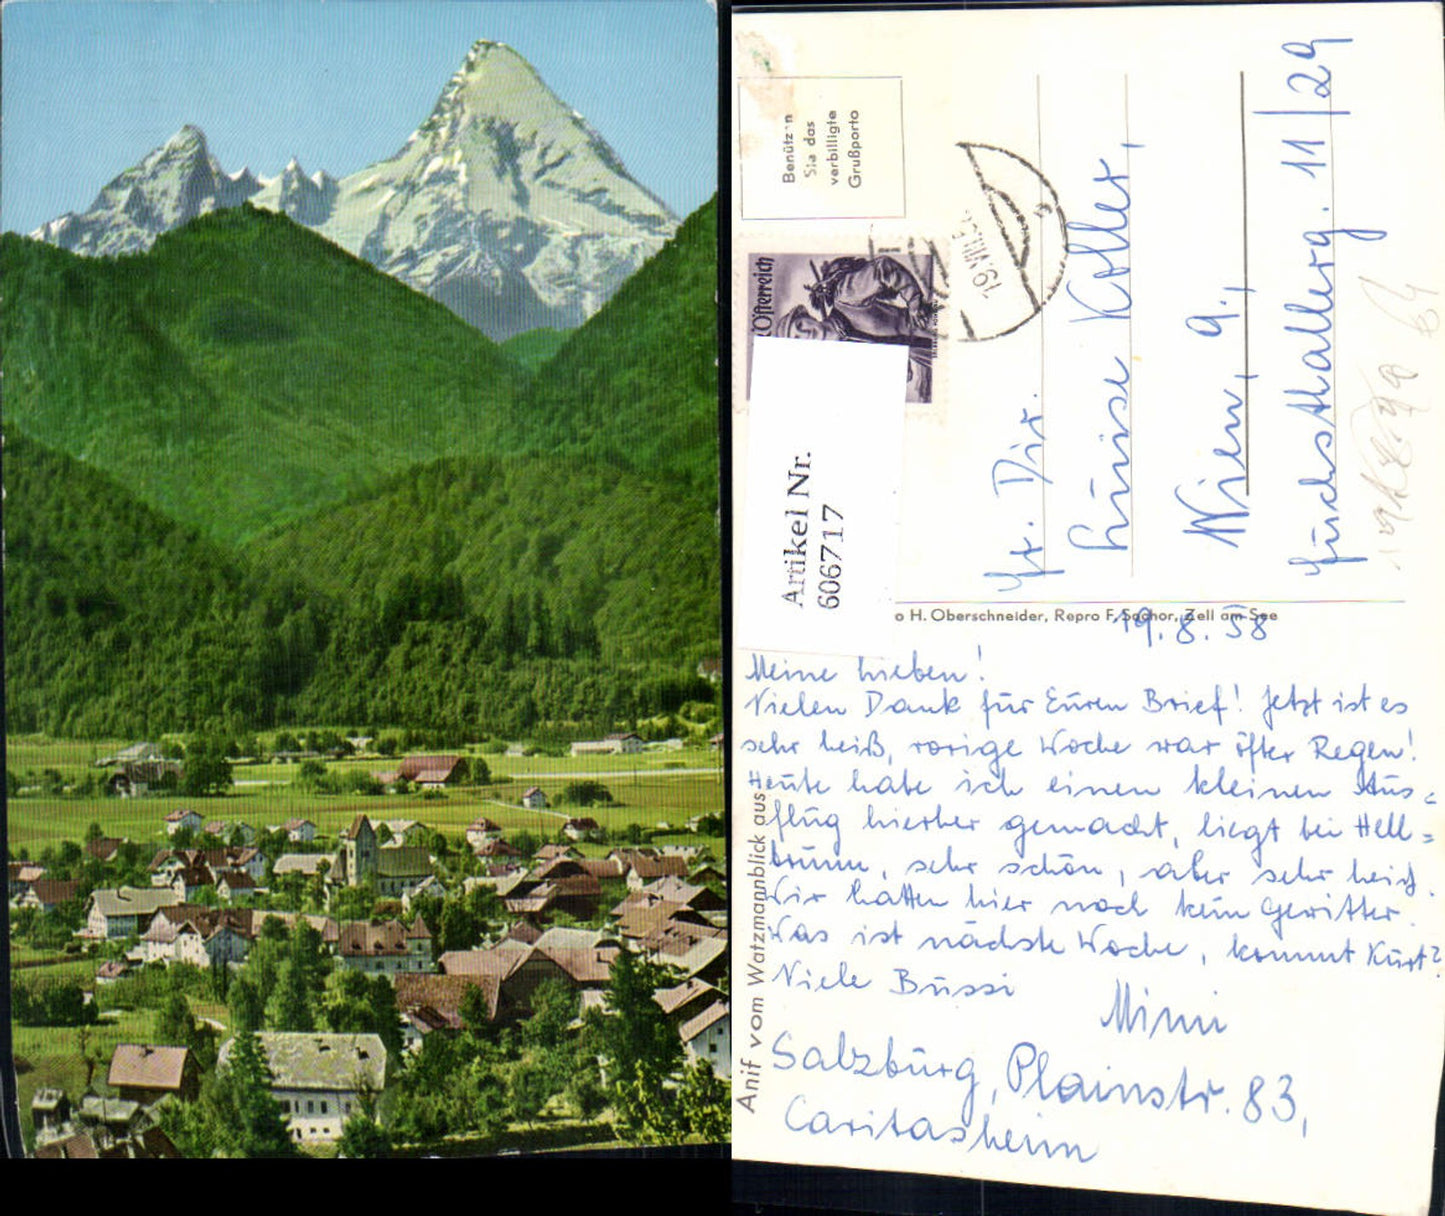 Benütz n
Sie das
verbilligte
Grußporto
Österreich
19.VIII.5
Artikel Nr.
606717
Fr. Dir.
Luise Koller,
Wien, 9.,
Fuchsthallerg. 11/29
o H. Oberschneider, Repro F. Sochor, Zell am See
Anif vom Watzmannblick aus
19.8.58
Meine Lieben!
Vielen Dank für Euren Brief! Jetzt ist es
sehr heiß, vorige Woche war öfter Regen!
Heute habe ich einen kleinen Aus=
flug hierher gemacht, liegt bei Hell=
brunn, sehr schön, aber sehr heiß.
Wir hatten hier noch kein Gewitter.
Was ist nächste Woche, kommt Kurt?
Viele Bussi
Mimi
Salzburg, Plainstr. 83,
Caritasheim